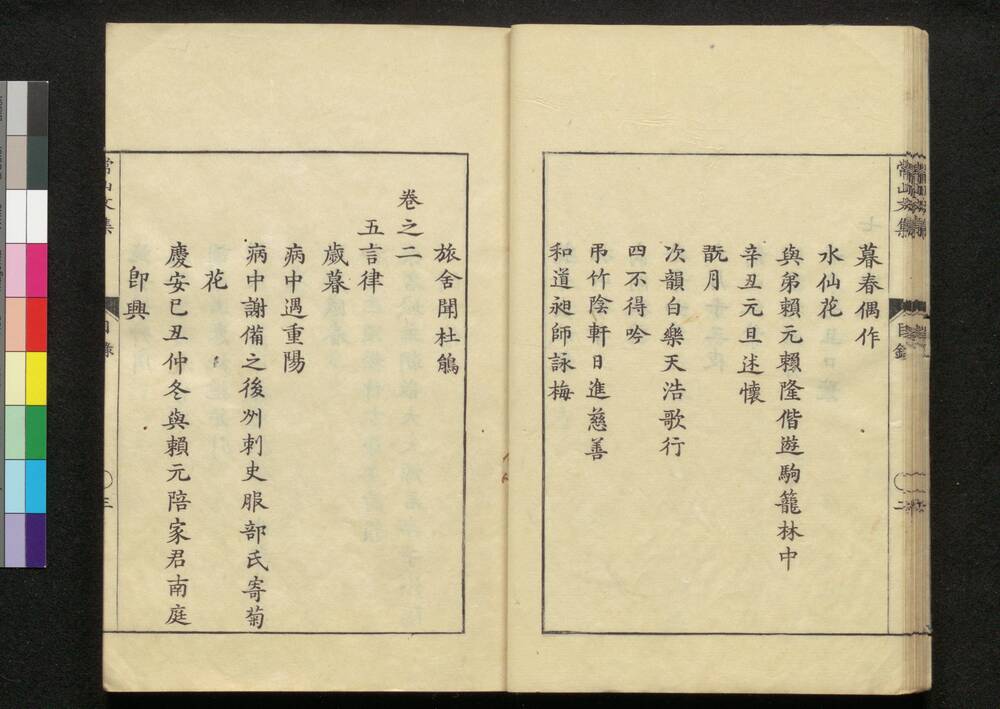 常山文集
目錄
二
暮春偶作
水仙花
與弟賴元賴隆偕遊駒籠林中
辛丑元旦述懷
翫月
次韻白樂天浩歌行
四不得吟
吊竹陰軒日進慈善
和道昶師詠梅
旅舍聞杜鵑
卷之二
五言律
歲暮
病中遇重陽
病中謝備之後州刺史服部氏寄菊
花
慶安己丑仲冬與賴元陪家君南庭
卽興
常山文集
目錄
三